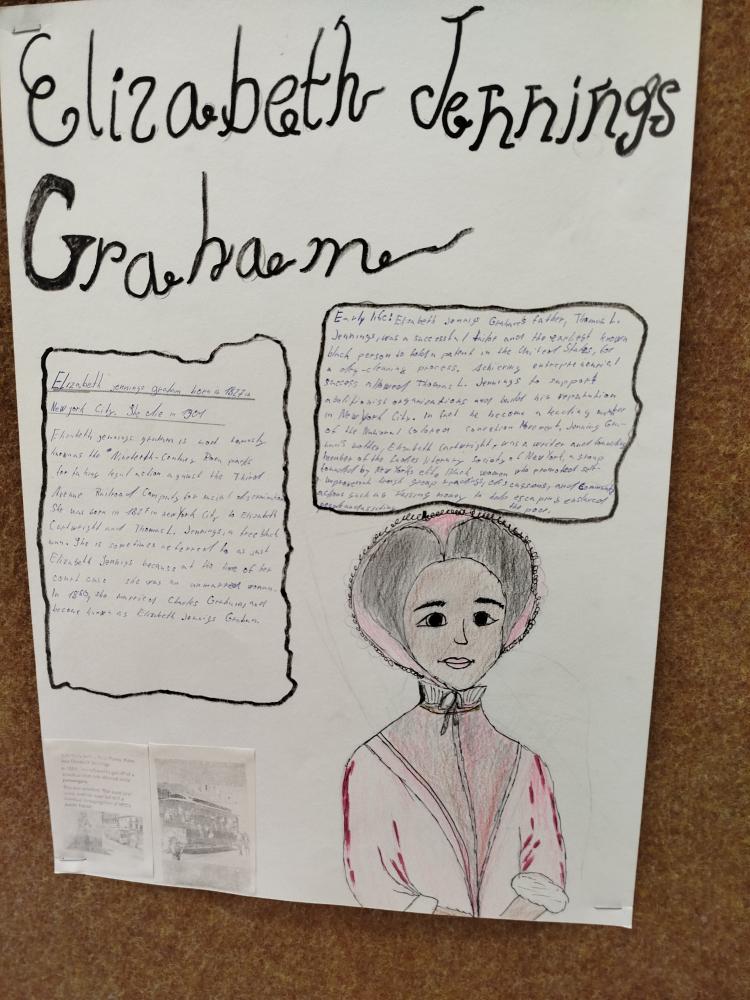 Elizabeth Jennings
Graham
Early life: Elizabeth Jennigs Graham's father, Thomas L.
Jennings, was a successful tailor and the earliest known
black person to hold a patent in the United States, for
a dry-cleaning process. Achieving entrepreneurial
success allowed Thomas L. Jennings to support
abolitionist organizations and build his reputation
in New York City. In fact he became a leading member
of the National Colored Convention Movement, Jenning Gra-
ham's mother, Elizabeth Cartwright, was a writer and founding
member of the Ladies Literary Society of New York, a group
founded by New York's elite Black women who promoted self-
improvement through group readings, discussions, and Community
actions such as raising money to help escaping enslaved
the poor.
Elizabeth jennings graham born in 1827 in
New york City. She die in 1901
Elizabeth jennings graham is most
known as the "Nineteenth-Century Rosa parks
for taking legal action against the Third
Avenue Railroad Company for racial discrimination
She was born in 1827 in new York City to Elizabeth
Cartwright and Thomas L. Jennings, a free black
man. She is sometimes referred to as just
Elizabeth Jennigs because at the time of her
court case she was an unmarried woman.
In 1860, she married Charles Graham and
became known as Elizabeth Jennigs Graham.